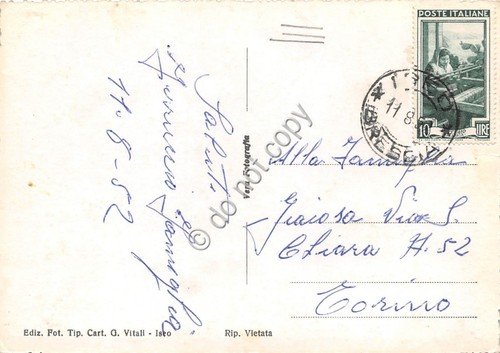 POSTE ITALIANE
10 LIRE
ISEO
11.8
Saluti
Ferruccio e
famiglia
11-8-52
Vera Fotografia
do not copy
Alla Famiglia
Gaiosa Via S.
Chiara N. 52
Torino
Ediz. Fot. Tip. Cart. G. Vitali - Iseo
Rip. Vietata